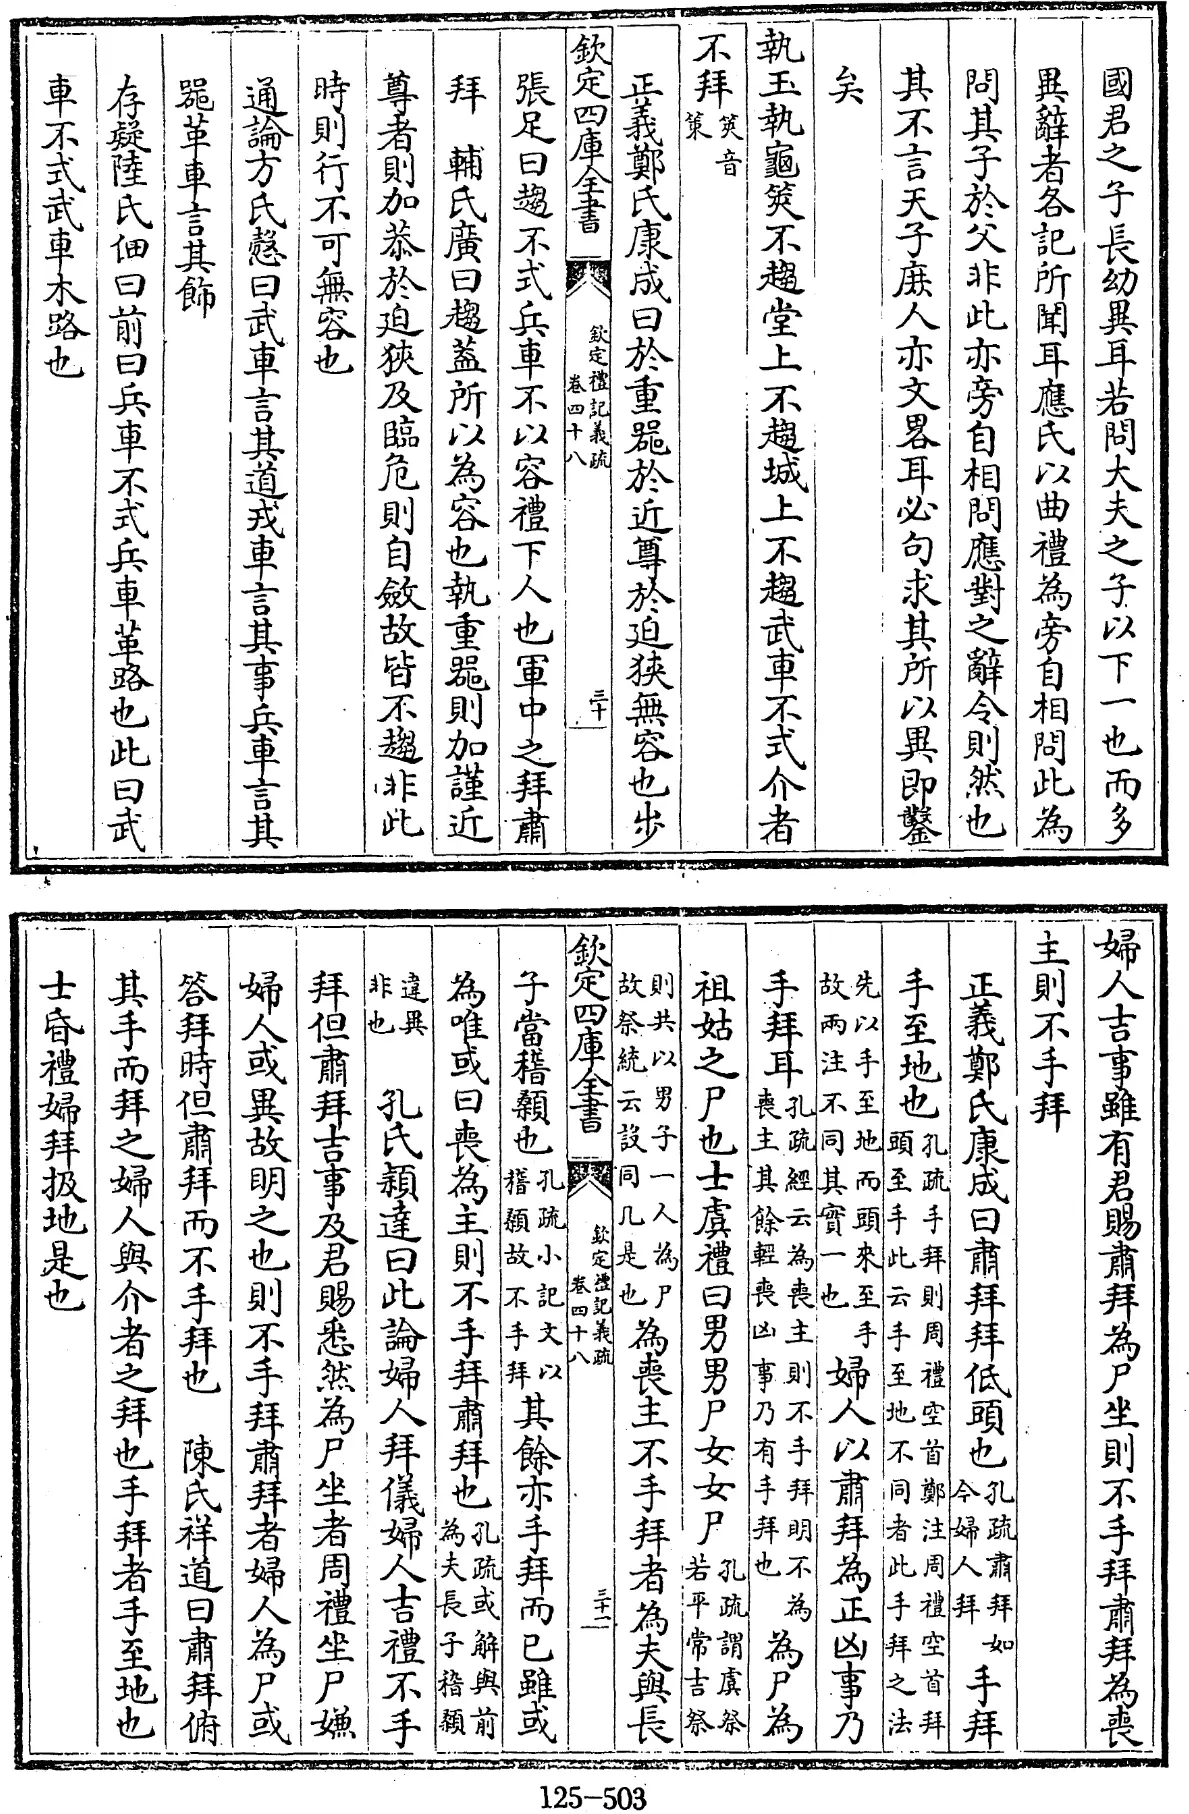 國君之子長幼異耳若問大夫之子以下一也而多
異辭者各記所聞耳應氏以曲禮為旁自相問此為
問其子於父非此亦旁自相問應對之辭令則然也
其不言天子庶人亦文畧耳必句求其所以異即鑿
矣
執玉執龜筴不趨堂上不趨城上不趨武車不式介者
不拜筴音
策
正義鄭氏康成曰於重器於近尊於迫狹無容也步
欽定四庫全書
欽定禮記義疏
卷四十八
三十
張足曰趨不式兵車不以容禮下人也軍中之拜肅
拜　輔氏廣曰趨蓋所以為容也執重器則加謹近
尊者則加恭於迫狹及臨危則自斂故皆不趨非此
時則行不可無容也
通論方氏慤曰武車言其道戎車言其事兵車言其
器革車言其飾
存疑陸氏佃曰前曰兵車不式兵車革路也此曰武
車不式武車木路也
婦人吉事雖有君賜肅拜為尸坐則不手拜肅拜為喪
主則不手拜
正義鄭氏康成曰肅拜拜低頭也孔疏肅拜如
今婦人拜手拜
手至地也孔疏手拜則周禮空首鄭注周禮空首拜
頭至手此云手至地不同者此手拜之法
先以手至地而頭來至手
故兩注不同其實一也婦人以肅拜為正凶事乃
手拜耳孔疏經云為喪主則不手拜明不為
喪主其餘輕喪凶事乃有手拜也為尸為
祖姑之尸也士虞禮曰男男尸女女尸孔疏謂虞祭
若平常吉祭
則共以男子一人為尸
故祭統云設同几是也為喪主不手拜者為夫與長
欽定四庫全書
欽定禮記義疏
卷四十八
三十一
子當稽顙也孔疏小記文以
稽顙故不手拜其餘亦手拜而已雖或
為唯或曰喪為主則不手拜肅拜也孔疏或解與前
為夫長子稽顙
違異
非也　孔氏穎達曰此論婦人拜儀婦人吉禮不手
拜但肅拜吉事及君賜悉然為尸坐者周禮坐尸嫌
婦人或異故明之也則不手拜肅拜者婦人為尸或
答拜時但肅拜而不手拜也　陳氏祥道曰肅拜俯
其手而拜之婦人與介者之拜也手拜者手至地也
士昏禮婦拜扱地是也
125-503